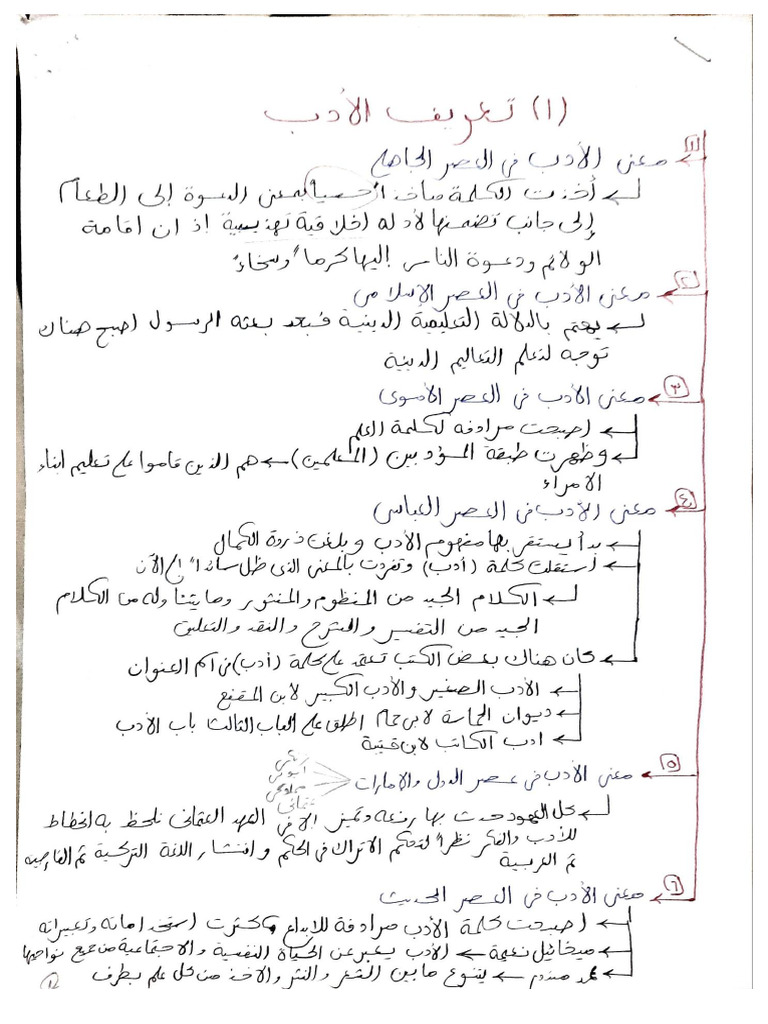 (١) تعريف الأدب
١ معنى الأدب فى العصر الجاهلى
أخذت الكلمة مأخذاً حسياً بمعنى الدعوة إلى الطعام
إلى جانب تضمنها لأدله اخلاقية تهذيبية اذ ان اقامة
الولائم ودعوة الناس إليها كرماً وسخاءً
٢ معنى الأدب فى العصر الإسلامى
يهتم بالدلالة التعليمية الدينية فبعد بعثه الرسول اصبح هناك
توجه لتعلم التعاليم الدينية
٣ معنى الأدب فى العصر الأموى
اصبحت مرادفه لكلمة العلم
وظهرت طبقة المؤدبين (المعلمين) هم الذين قاموا على تعليم ابناء
الامراء
٤ معنى الأدب فى العصر العباسى
بدأ يستقر بها مفهوم الأدب وبلغت ذروة الكمال
أستقلت كلمة (أدب) وتفردت بالمعنى الذى ظل سائداً إلى الآن
الكلام الجيد من المنظوم والمنثور وما يتناوله من الكلام
الجيد من التفسير والشرح والنقد والتعليق
كان هناك بعض الكتب تعتمد على كلمة (أدب) فى اسم العنوان
الأدب الصغير والأدب الكبير لابن المقفع
ديوان الحماسة لابى تمام اطلق على الباب الثالث باب الأدب
ادب الكاتب لابن قتيبة
٥ معنى الأدب فى عصر الدول والامارات
أيوبى
عثمانى
كل العهود حدث بها رفعه وتميز الا فى العهد العثمانى نلحظ به انحطاط
للأدب والفكر نظراً لتحكم الاتراك فى الحكم وانتشار اللغة التركية ثم الفارسية
ثم العربية
٦ معنى الأدب فى العصر الحديث
اصبحت كلمة الأدب مرادفة للابداع وكثرت استخداماته وتعبيراته
ميخائيل نعيمة الأدب يعبر عن الحياة النفسية والاجتماعية من جميع نواحيها
محمد مندور يتنوع ما بين الشعر والنثر والاخذ من كل علم بطرف